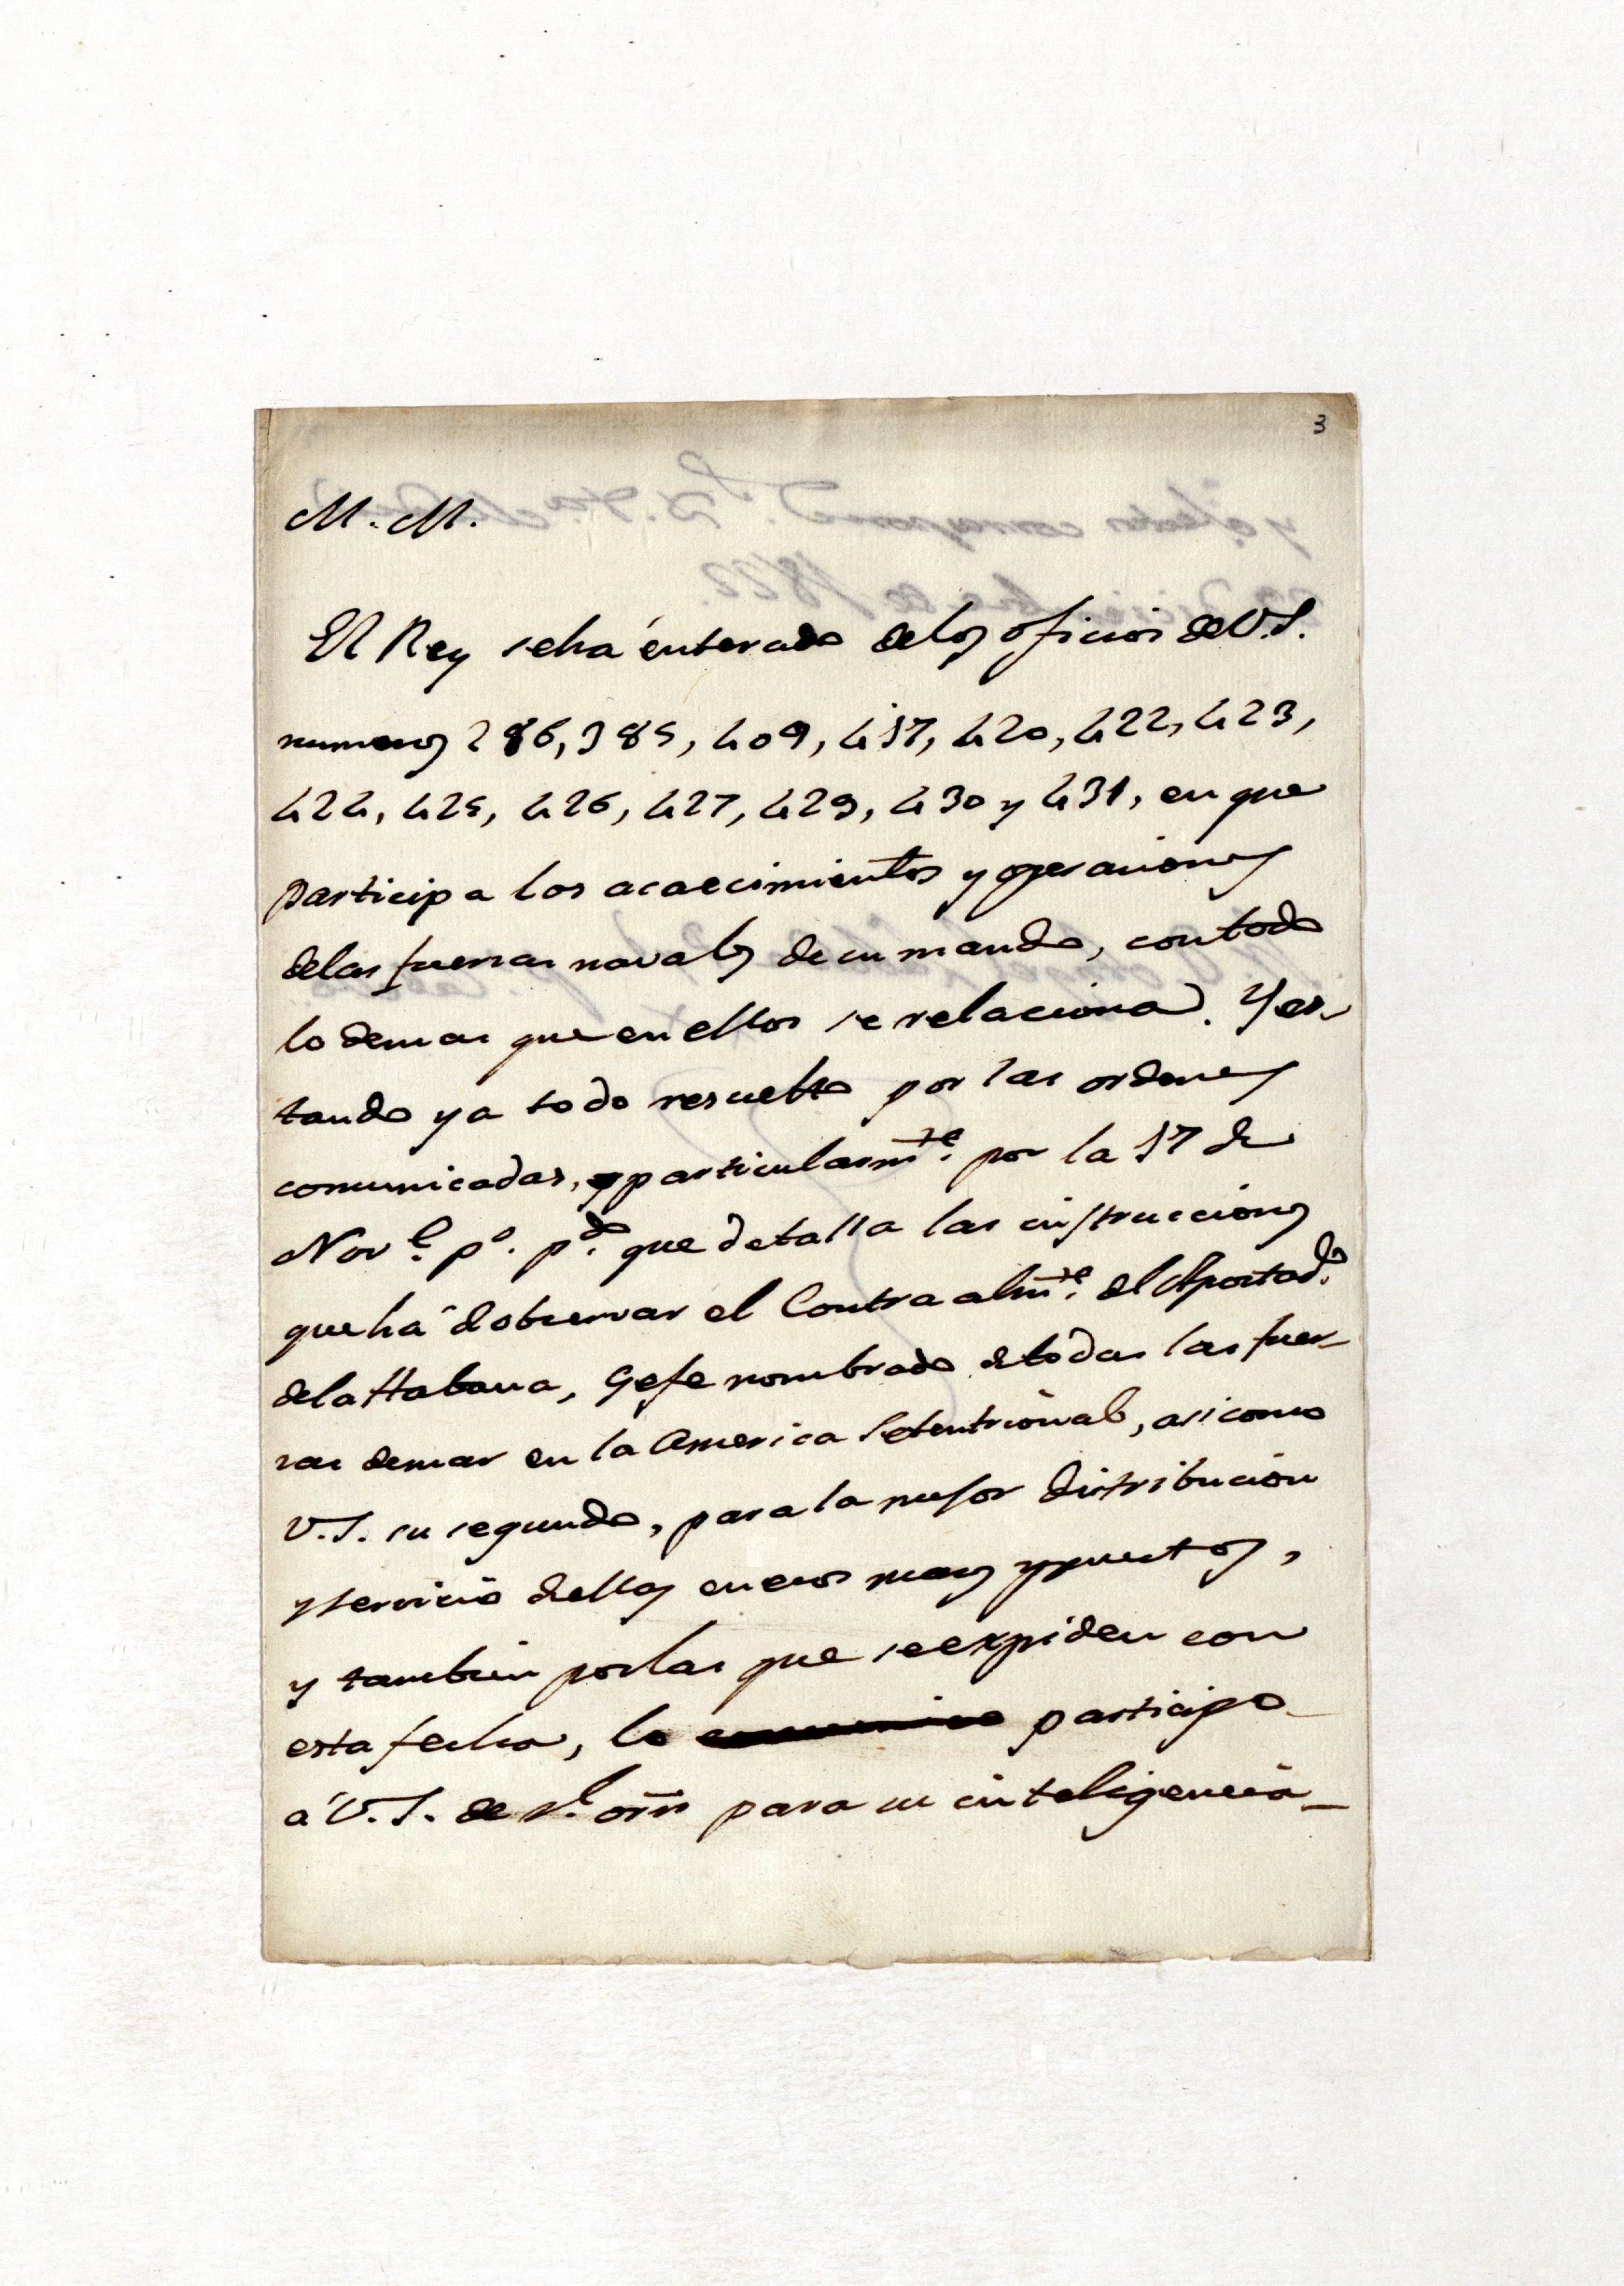 3
M. M.
El Rey se há enterado de los oficios de V.S.
numeros 286, 385, 409, 417, 420, 422, 423,
424, 425, 426, 427, 429, 430 y 431, en que
participa los acaecimientos y operaciones
de las fuerzas navales de su mando, con todo
lo demas que en ellos se relaciona. Y es-
tando ya todo resuelto por las ordenes
comunicadas, y particularmte. por la 17 de
Nove. po. pdo. que detalla las instrucciones
que há de observar el Contraalmte. del Apostado.
de la Habana, Gefe nombrado de todas las fuer-
zas de mar en la America Setentrional, asi como
V.S. su segundo, para la mejor distribucion
y servicio de ellas en esos mares y puertos,
y tambien por las que se expiden con
esta fecha, lo comunico participo
á V.S. de Rl. orn para su inteligencia